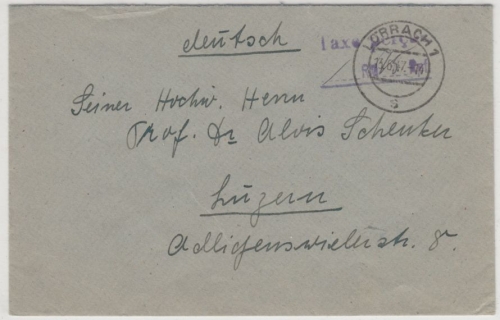 deutsch
Taxe
LÖRRACH 1
Seiner Hochw. Herrn
Prof. Dr Alois Schenker
Luzern
Adligenswilerstr. 8.